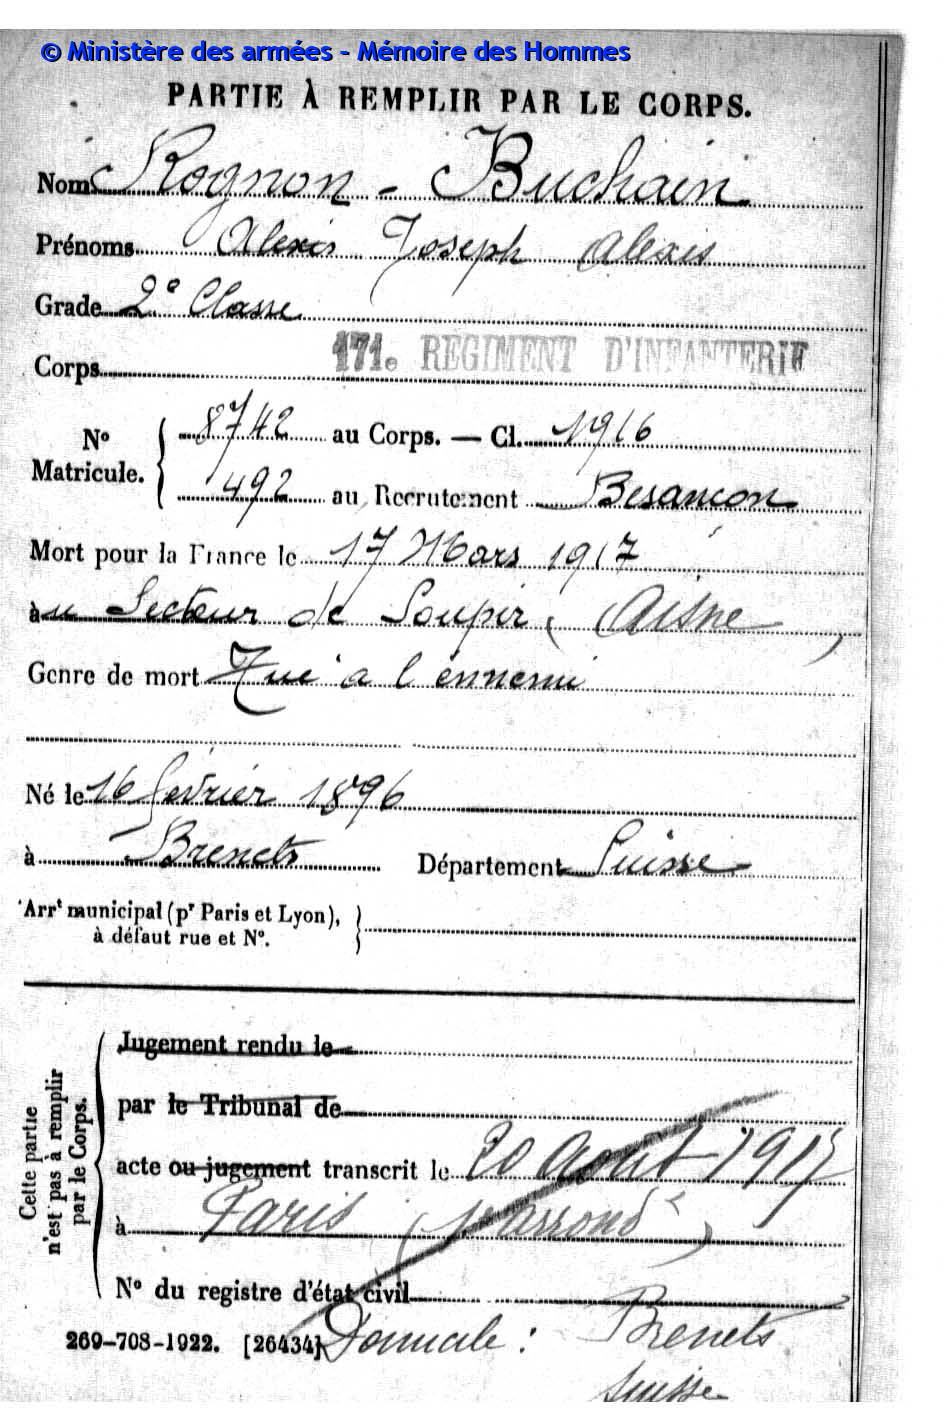 © Ministère des armées - Mémoire des Hommes
PARTIE À REMPLIR PAR LE CORPS.
Nom Rognon - Buchain
Prénoms Alexis Joseph Alexis
Grade 2e Classe
Corps 171e REGIMENT D'INFANTERIE
No Matricule. { 8742 au Corps. — Cl. 1916
492 au Recrutement Besançon
Mort pour la France le 17 Mars 1917
au Secteur de Soupir (Aisne)
Genre de mort Tué à l'ennemi
Né le 16 février 1896
à Brenets Département Suisse
Arrt municipal (pr Paris et Lyon),
à défaut rue et No.
Cette partie n'est pas à remplir par le Corps.
Jugement rendu le
par le Tribunal de
acte ou jugement transcrit le 20 août 1917
à Paris (
No du registre d'état civil
269-708-1922. [26434] Domicile : Brenets
Suisse